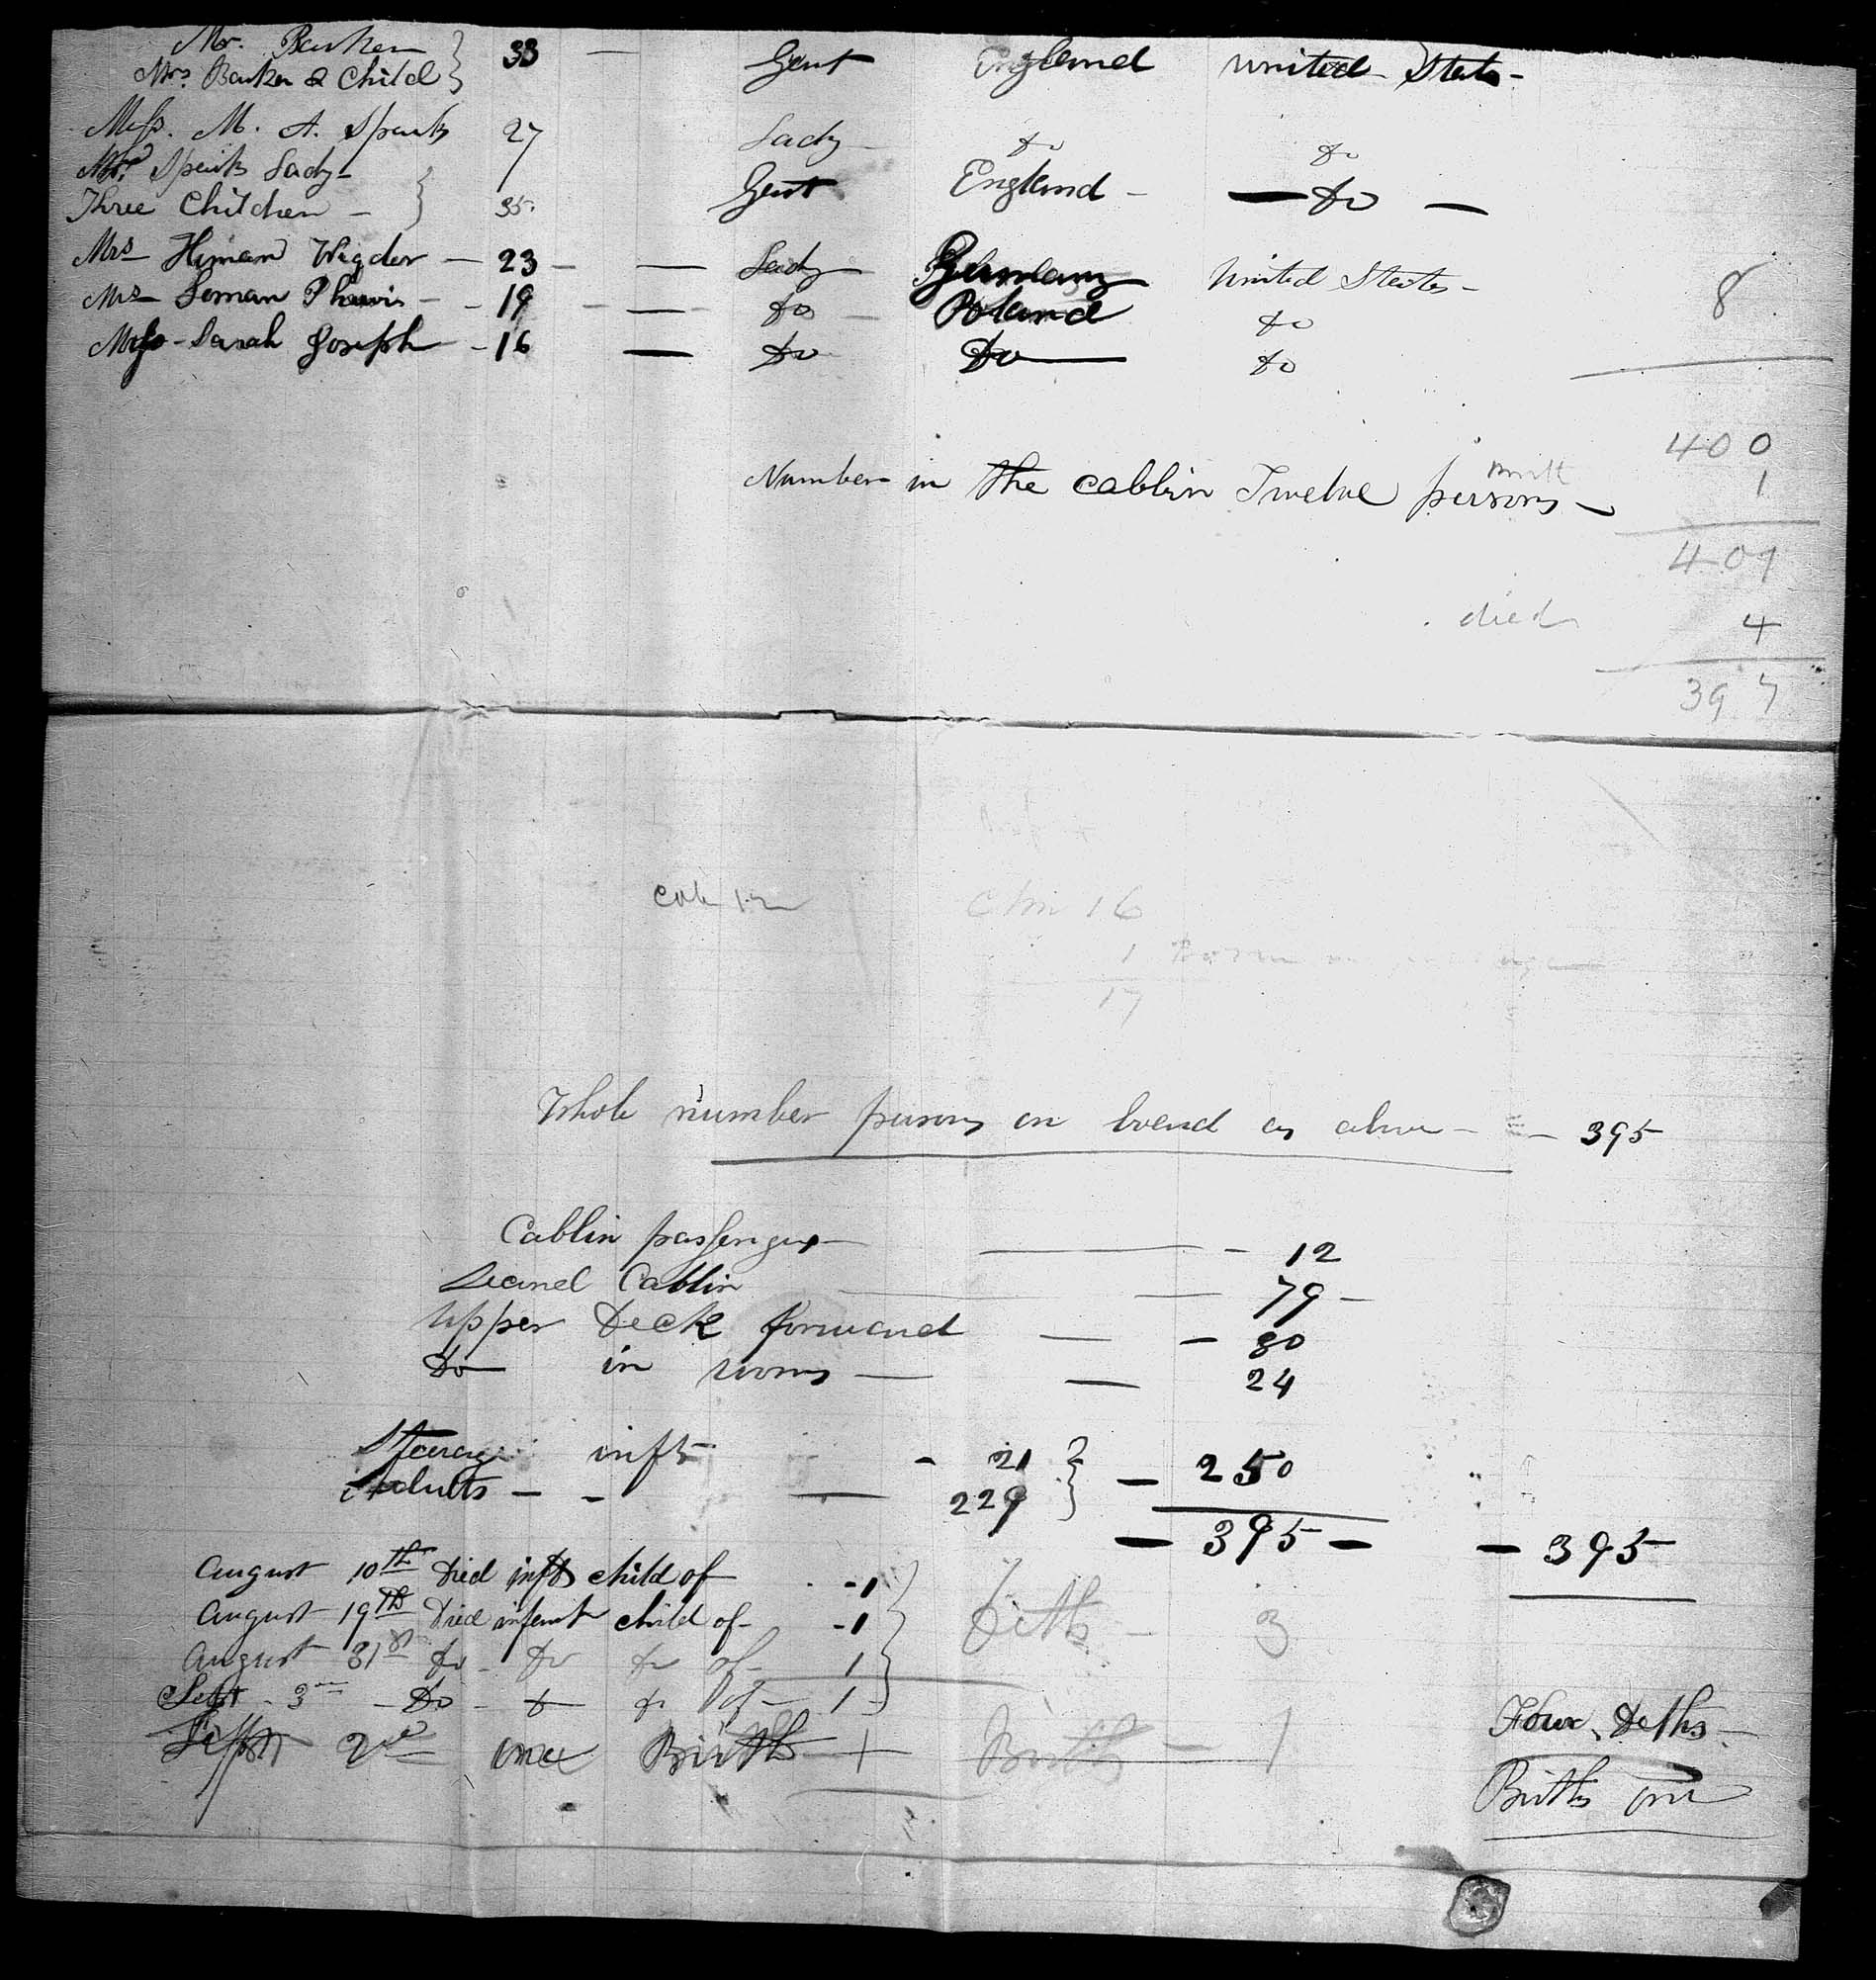 Mr. Barker } 33 — Gent England United States -
Mrs. Barker & Child }
Miss. M. A. Spenks 27 Lady do do
Mrs. Spenks Lady - } Gent England - — do —
Three Children - } 35.
Mrs - Himan Wigder - 23 - — Lady Germany United States - 8
Mrs - Leman - 19 - — do Poland do
Miss - Sarah Joseph - 16 — do do — do
400
Number in the Cabbin Twelve persons - Birth 1
401
died 4
397
Cab 12
Cbn 16
1 Born
17
Whole number persons on board as above - - 395
Cabbin passengers — - 12
Second Cabbin — 79 -
Upper Deck forward — - 30
do in rooms — — 24
Stearage infts - 21 } — 250
Adults - - — 229 }
— 395 — — 395
August 10th Died infts child of - 1 }
August 19th Died infent child of - - 1 } Deths - 3
August 31st do - do do of - 1 }
Sept - 3 - do - do do of - 1 }
Sept 2nd one Birth 1 Birth - 1
Four Deths -
Births one